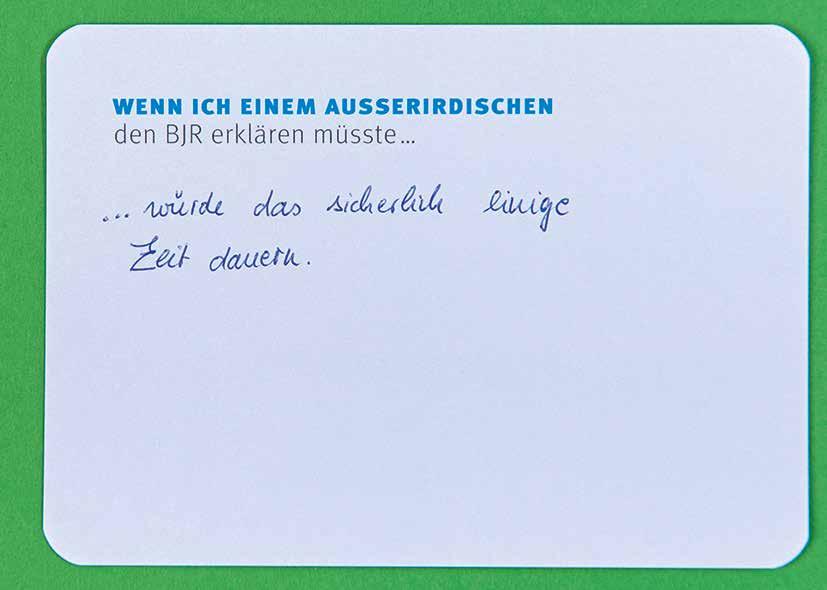 WENN ICH EINEM AUSSERIRDISCHEN
den BJR erklären müsste...
... würde das sicherlich einige
Zeit dauern.